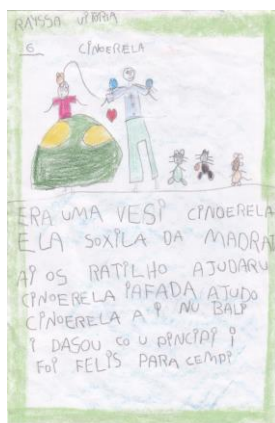 RAYSSA VIRRIA
6 CINDERELA
ERA UMA VESI CINDERELA
ELA SOXILA DA MADRA
AI OS RATILHO AJUDARU
CINDERELA IAFADA AJUDO
CINDERELA A I NU BALI
I DASOU CO U PINCIPI I
FOI FELIS PARA CEMPI